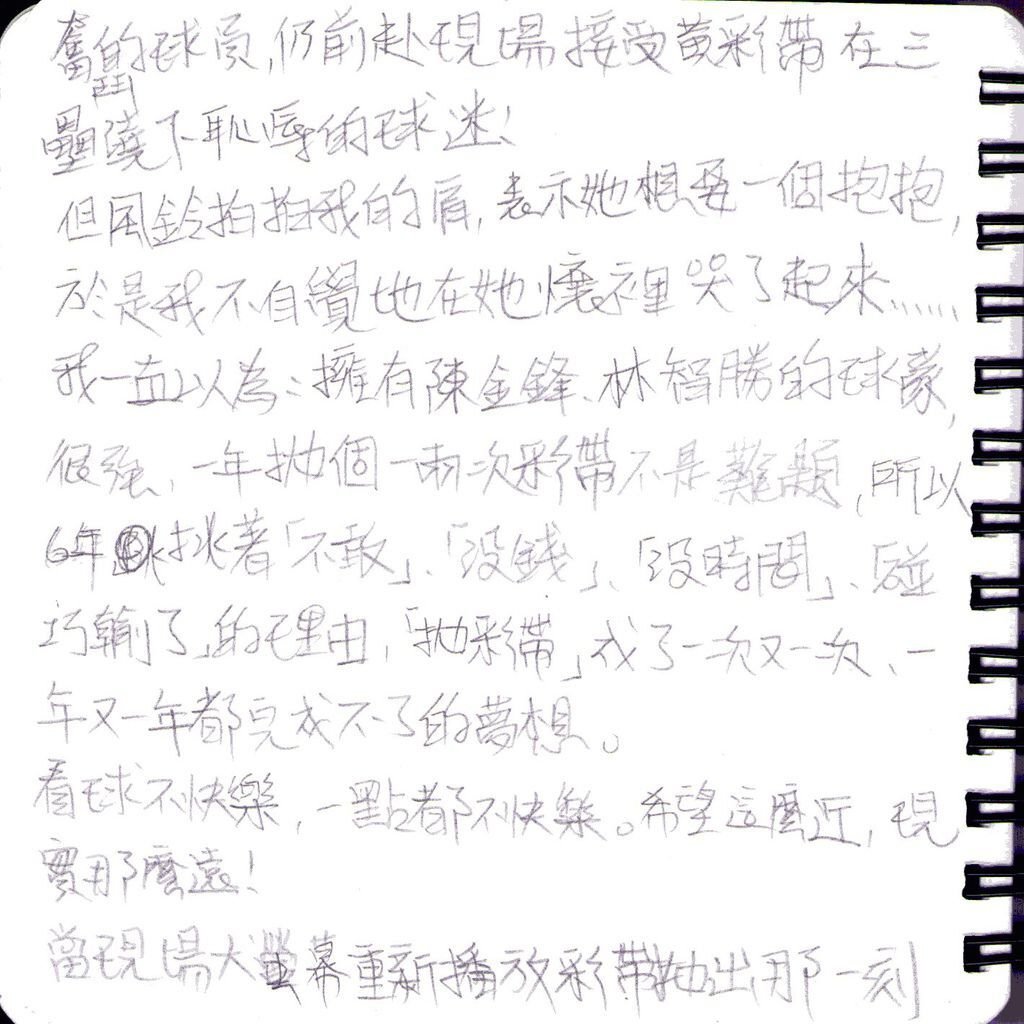 奮鬥的球員,仍前赴現場接受黃彩帶在三
壘燒下恥辱的球迷!
但風鈴拍拍我的肩,表示她想要一個抱抱,
於是我不自覺地在她懷裡哭了起來……
我一直以為:擁有陳金鋒、林智勝的球隊,
很強、一年拋個一兩次彩帶不是難題,所以
6年 挑著「不敢」、「沒錢」、「沒時間」、「碰
巧輸了」的理由,「拋彩帶」成了一次又一次、一
年又一年都完成不了的夢想。
看球不快樂,一點都不快樂。希望這麼近,現
實那麼遠!
當現場大螢幕重新播放彩帶拋出那一刻